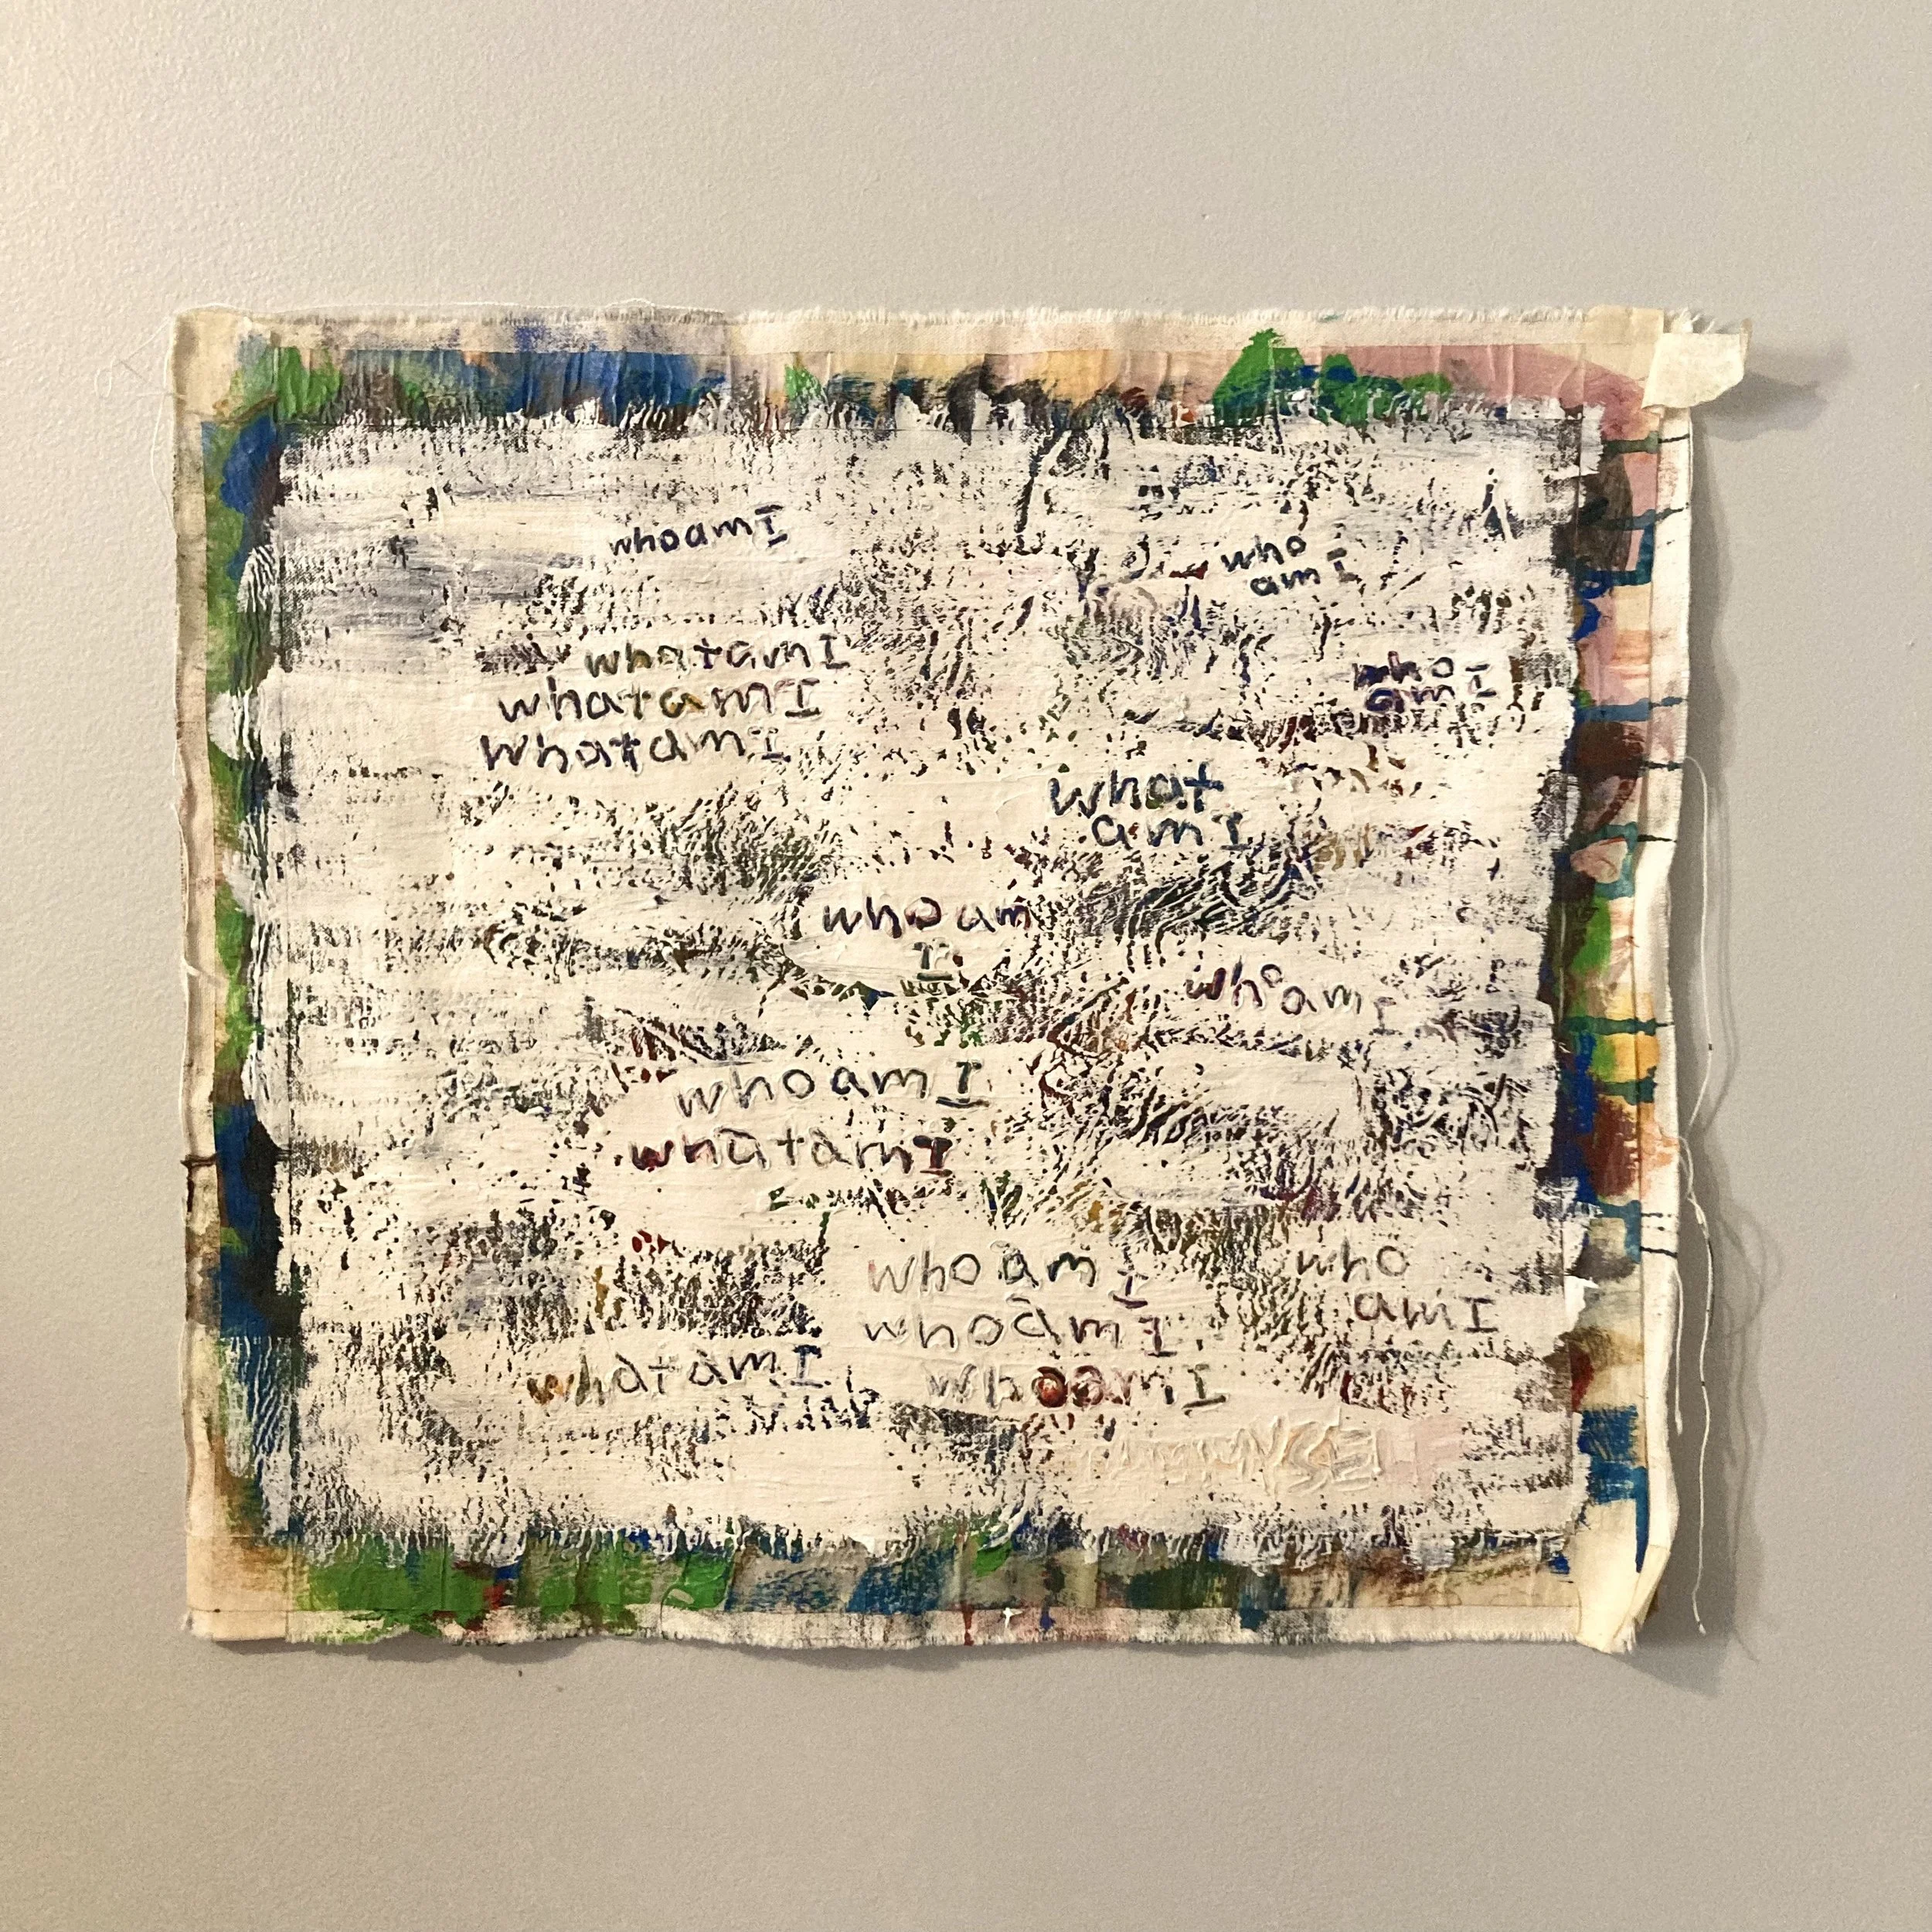 whoamI
who
amI
whatamI
whatamI
whatamI
who
amI
what
amI
whoam
I
whoam
I
whoamI
whatamI
whoamI
whoamI
whoamI
who
amI
whatamI